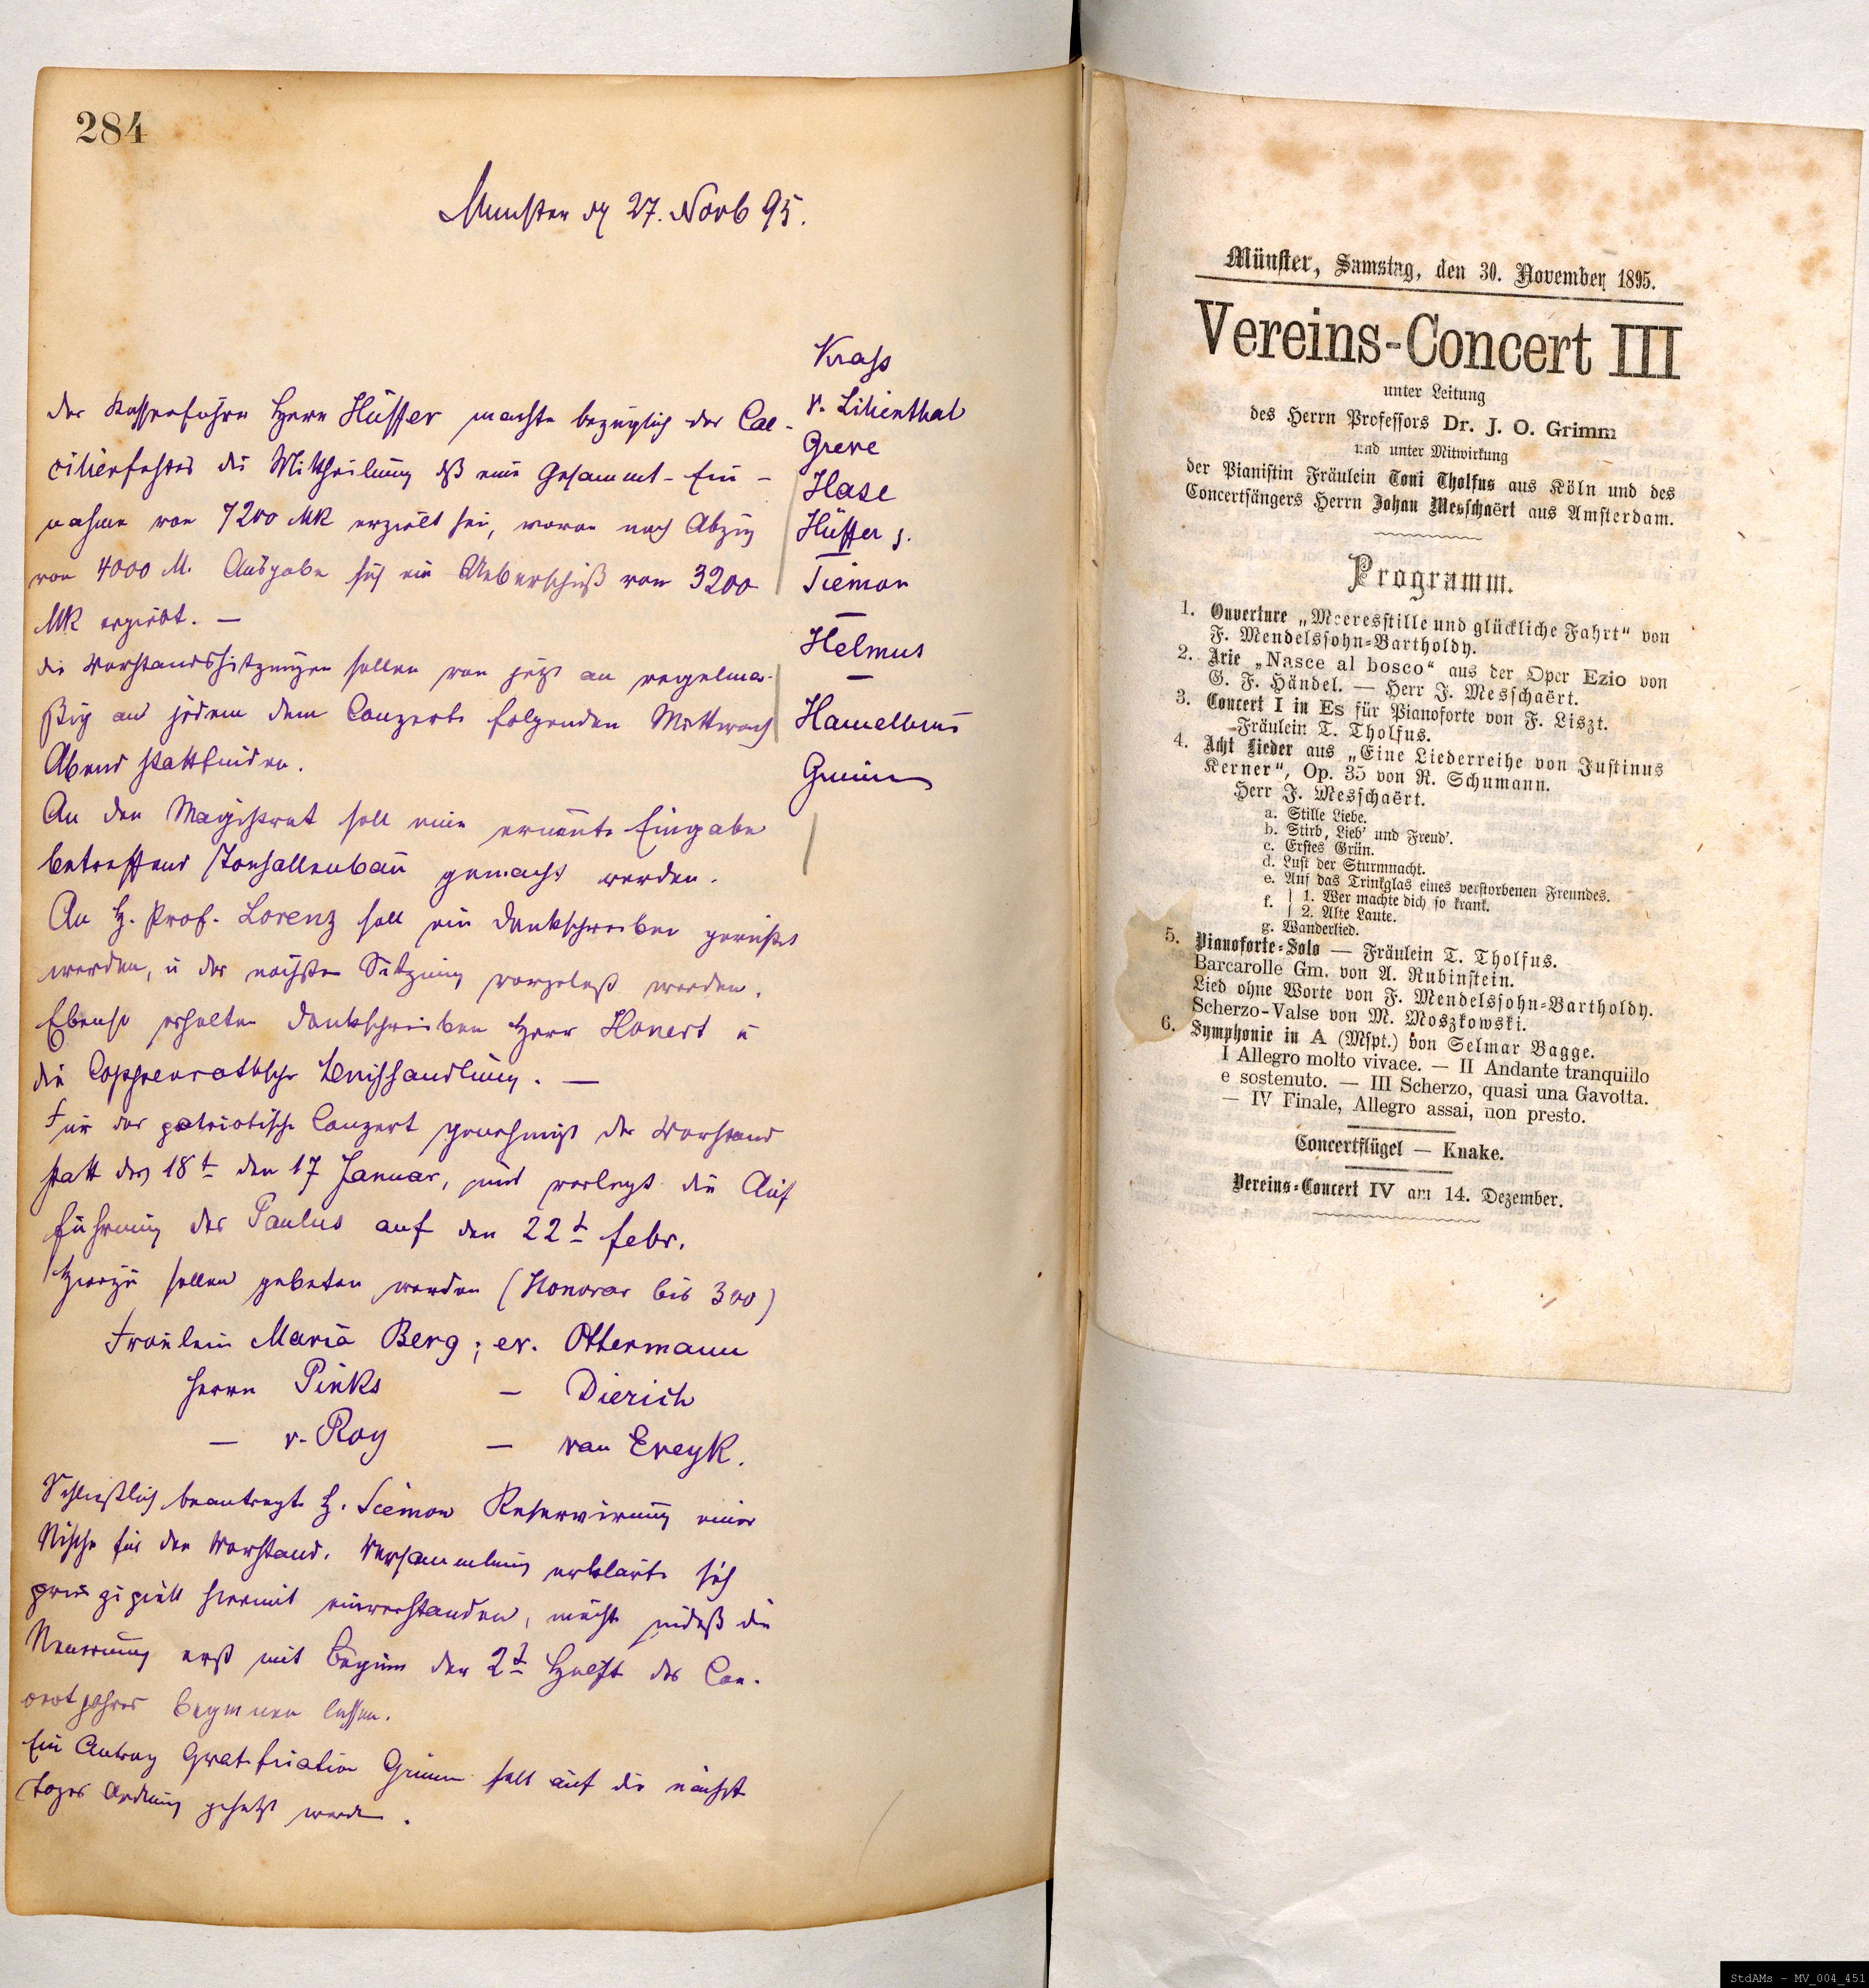 284
Münster d 27. Novb 95.
Krass
v. Lilienthal
Greve
Hase
Hüffer j.
Tiemon
Helmus
Hamelbeus
Grimm
Der Kassenführer Herr Hüffer machte bezüglich des Cae-
cilienfestes die Mittheilung daß eine Gesammt-Ein-
nahme von 7200 MK erzielt sei, wovon nach Abzug
von 4000 M. Ausgabe sich ein Ueberschuß von 3200
MK ergiebt. —
Die Vorstandssitzungen sollen von jetzt an regelmä-
ßig an jedem dem Conzerte folgenden Mittwoch
Abend stattfinden.
An den Magistrat soll eine erneute Eingabe
betreffend Tonhallenbau gemacht werden.
An H. Prof. Lorenz soll ein Dankschreiben gerichtet
werden, u der nächsten Sitzung vorgelegt werden.
Ebenso erhalten Dankschreiben Herr Honert u
die Coppenrathsche Buchhandlung. —
Für das patriotische Conzert genehmigt der Vorstand
statt des 18t den 17 Januar, und verlegt die Auf
führung des Paulus auf den 22t Febr.
Hierzu sollen gebeten werden (Honorar bis 300)
Fräulein Maria Berg; ev. Ottermann
Herrn Pinks — Dierich
— v. Roy — van Eweyk.
Schließlich beantragte H. Tiemon Reservirung einer
Nische für den Vorstand. Versammlung erklärte sich
prinzipiell hiermit einverstanden, möchte indeß die
Neuerung erst mit Beginn der 2t Hälfte des Con-
certjahres beginnen lassen.
Ein Antrag Gratification Grimm soll auf die nächste
Tages Ordnung gesetzt werden.
Münster, Samstag, den 30. November 1895.
Vereins-Concert III
unter Leitung
des Herrn Professors Dr. J. O. Grimm
und unter Mitwirkung
der Pianistin Fräulein Toni Tholfus aus Köln und des
Concertsängers Herrn Johan Messchaërt aus Amsterdam.
Programm.
1. Ouverture „Meeresstille und glückliche Fahrt“ von
F. Mendelssohn-Bartholdy.
2. Arie „Nasce al bosco“ aus der Oper Ezio von
G. F. Händel. — Herr J. Messchaërt.
3. Concert I in Es für Pianoforte von F. Liszt.
Fräulein T. Tholfus.
4. Acht Lieder aus „Eine Liederreihe von Justinus
Kerner“, Op. 35 von R. Schumann.
Herr J. Messchaërt.
a. Stille Liebe.
b. Stirb, Lieb' und Freud'.
c. Erstes Grün.
d. Lust der Sturmnacht.
e. Auf das Trinkglas eines verstorbenen Freundes.
f. { 1. Wer machte dich so krank.
{ 2. Alte Laute.
g. Wanderlied.
5. Pianoforte-Solo — Fräulein T. Tholfus.
Barcarolle Gm. von A. Rubinstein.
Lied ohne Worte von F. Mendelssohn-Bartholdy.
Scherzo-Valse von M. Moszkowski.
6. Symphonie in A (Mspt.) von Selmar Bagge.
I Allegro molto vivace. — II Andante tranquillo
e sostenuto. — III Scherzo, quasi una Gavotta.
— IV Finale, Allegro assai, non presto.
Concertflügel — Knake.
Vereins-Concert IV am 14. Dezember.
StdAMs - MV_004_451